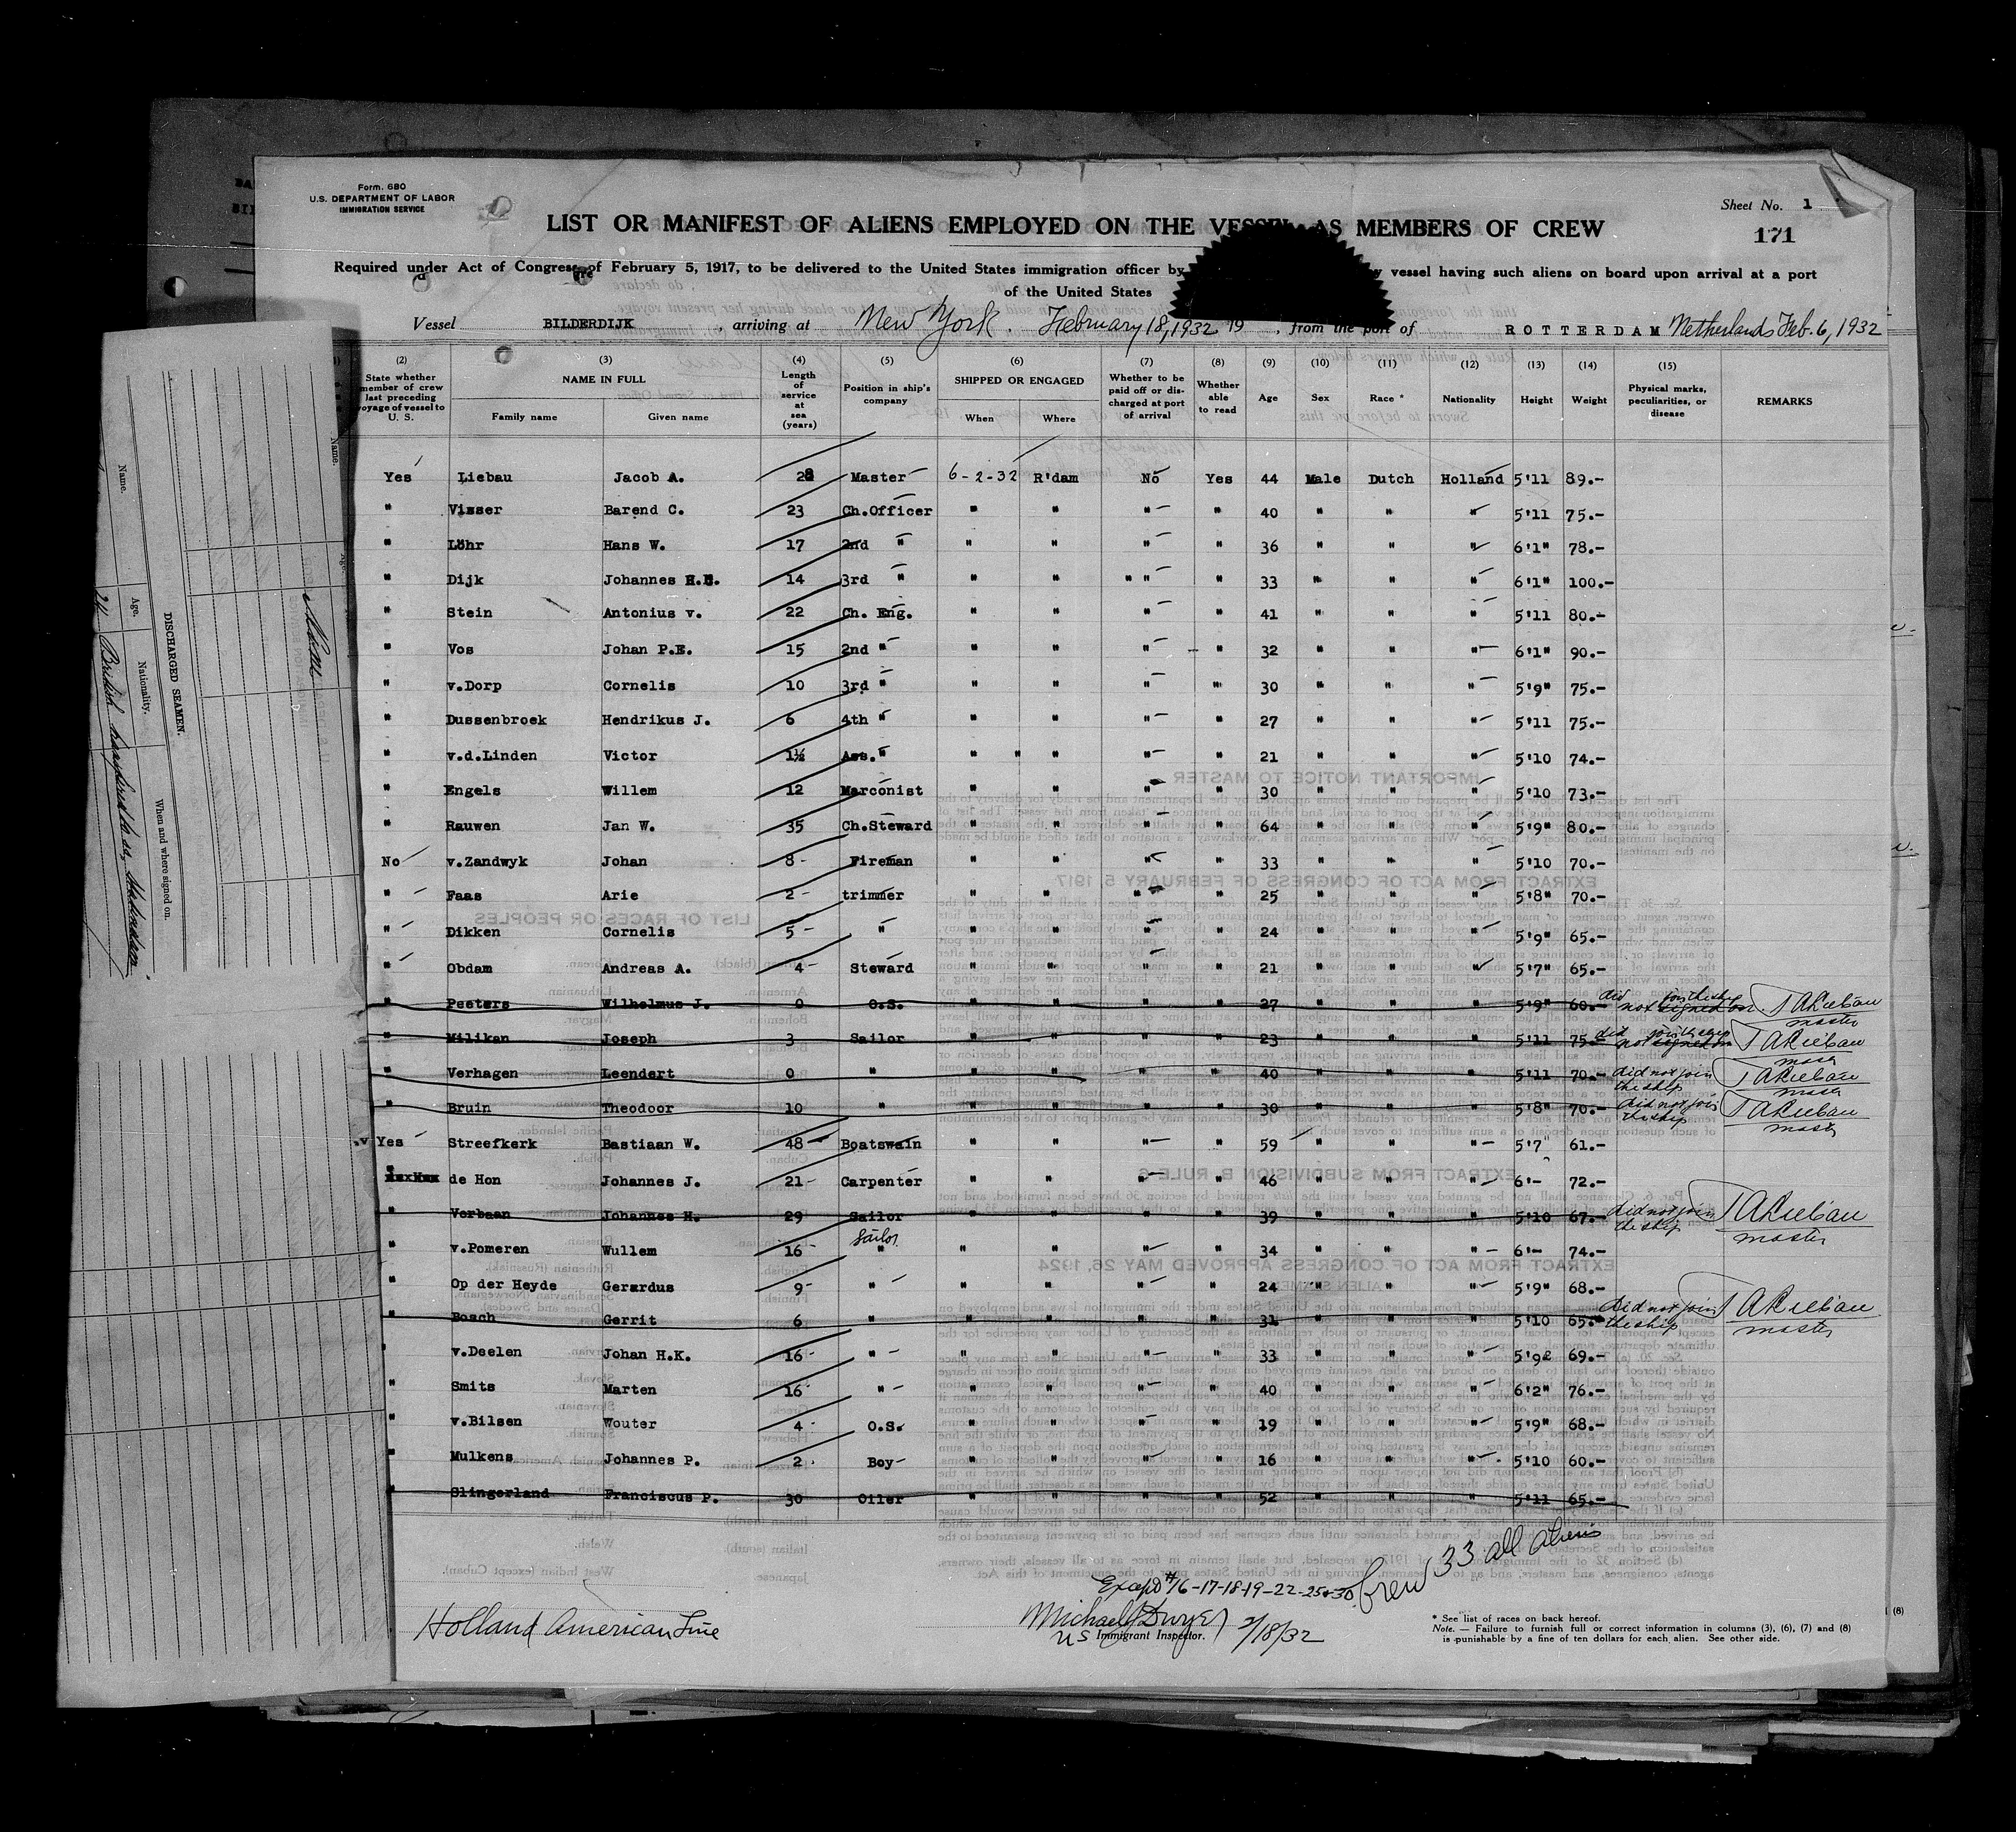 Form. 680
U.S. DEPARTMENT OF LABOR
IMMIGRATION SERVICE
Sheet No. 1
LIST OR MANIFEST OF ALIENS EMPLOYED ON THE VESSEL AS MEMBERS OF CREW
171
Required under Act of Congress of February 5, 1917, to be delivered to the United States immigration officer by vessel having such aliens on board upon arrival at a port
of the United States
Vessel BILDERDIJK, arriving at New York. February 18, 1932 19 , from the port of ROTTERDAM Netherlands Feb. 6, 1932
(2) (3) (4) (5) (6) (7) (8) (9) (10) (11) (12) (13) (14) (15)
State whether member of crew last preceding voyage of vessel to U. S. NAME IN FULL Family name Given name Length of service at sea (years) Position in ship's company SHIPPED OR ENGAGED When Where Whether to be paid off or discharged at port of arrival Whether able to read Age Sex Race * Nationality Height Weight Physical marks, peculiarities, or disease REMARKS
Yes Liebau Jacob A. 28 Master 6-2-32 R'dam No Yes 44 Male Dutch Holland 5'11 89.-
" Visser Barend C. 23 Ch.Officer " " " " 40 " " " 5'11 75.-
" Löhr Hans W. 17 2nd " " " " " 36 " " " 6'1" 78.-
" Dijk Johannes 14 3rd " " " " " " 33 " " " 6'1" 100.-
" Stein Antonius v. 22 Ch. Eng. " " " " 41 " " " 5'11 80.-
" Vos Johan P.E. 15 2nd " " " " " 32 " " " 6'1" 90.-
" v.Dorp Cornelis 10 3rd " " " " " 30 " " " 5'9" 75.-
" Dussenbroek Hendrikus J. 6 4th " " " " " 27 " " " 5'11 75.-
" v.d.Linden Victor 1½ Ass." " " " " " 21 " " " 5'10 74.-
" Engels Willem 12 Marconist " " " " 30 " " " 5'10 73.-
" Rauwen Jan W. 35 Ch.Steward " " " " 64 " " " 5'9" 80.-
No v.Zandwyk Johan 8 Fireman " " " " 33 " " " 5'10 70.-
" Faas Arie 2 trimmer " " " " 25 " " " 5'8" 70.-
" Dikken Cornelis 5 " " " " " 24 " " " 5'9" 65.-
" Obdam Andreas A. 4 Steward " " " " 21 " " " 5'7" 65.-
" Peeters Wilhelmus J. 0 O.S. " " " " 27 " " " 5'9" 60.- did not signed on join the ship JALiebau master
" Milikan Joseph 3 Sailor " " " " 23 " " " 5'11 75.- did not signed on join the ship JALiebau master
" Verhagen Leendert 0 " " " " " 40 " " " 5'11 70.- did not join the ship JALiebau master
" Bruin Theodoor 10 " " " " " 30 " " " 5'8" 70.- did not join the ship JALiebau master
Yes Streefkerk Bastiaan W. 48 Boatswain " " " " 59 " " " 5'7" 61.-
" de Hon Johannes J. 21 Carpenter " " " " 46 " " " 6'- 72.-
" Verbaan Johannes H. 29 Sailor " " " " 39 " " " 5'10 67.- did not join the ship JALiebau master
" v.Pomeren Wullem 16 " Sailor " " " " 34 " " " 6'- 74.-
" Op der Heyde Gerardus 9 " " " " " 24 " " " 5'9" 68.-
" Bosch Gerrit 6 " " " " " 31 " " " 5'10 65.- did not join the ship JALiebau master
" v.Deelen Johan H.K. 16 " " " " " 33 " " " 5'92 69.-
" Smits Marten 16 " " " " " 40 " " " 6'2" 76.-
" v.Bilsen Wouter 4 O.S. " " " " 19 " " " 5'9" 68.-
" Mulkens Johannes P. 2 Boy " " " " 16 " " " 5'10 60.-
" Slingerland Franciscus P. 30 Oiler " " " " 52 " " " 5'11 65.-
Crew 33 all aliens
Except #16-17-18-19-22-25+30
Holland American Line
Michael J Dwyer 2/18/32
US Immigrant Inspector.
* See list of races on back hereof.
Note. — Failure to furnish full or correct information in columns (3), (6), (7) and (8)
is punishable by a fine of ten dollars for each alien. See other side.
DISCHARGED SEAMEN.
Name. Age. Nationality. When and where signed on.
Name.
British